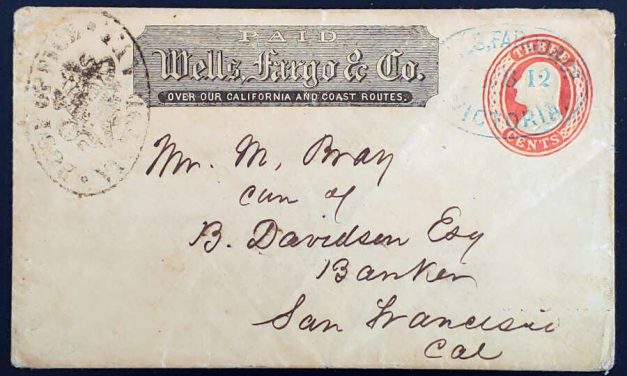 PAID
Wells, Fargo & Co.
OVER OUR CALIFORNIA AND COAST ROUTES.
POST OFFICE
PAID
THREE
12
VICTORIA
CENTS
Mr. M. Bray
care of
B. Davidson Esq
Banker
San Francisco
Cal